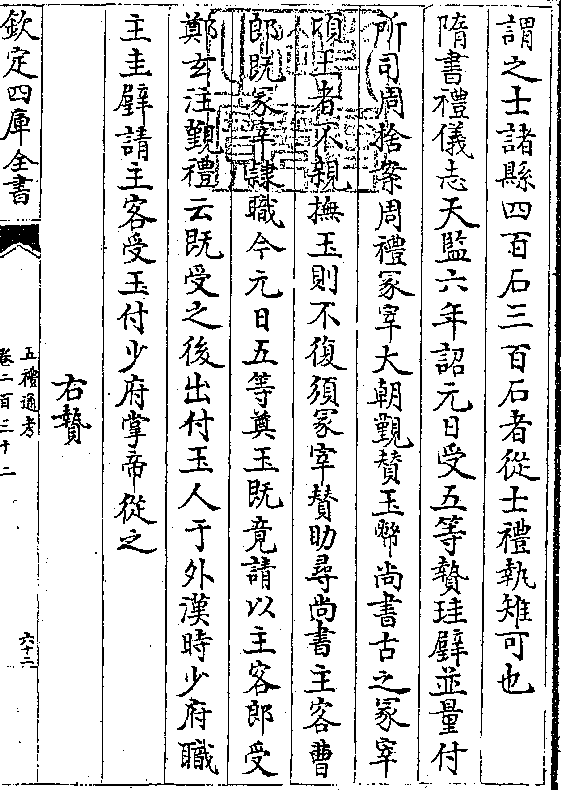 謂之士諸縣四百石三百石者從士禮執雉可也
隋書禮儀志天監六年詔元日受五等贄珪璧並量付
所司周捨案周禮冢宰大朝覲贊玉幣尚書古之冢宰
頃王者不親撫玉則不復須冢宰贊助尋尚書主客曹
郎既冢宰隸職今元日五等奠玉既竟請以主客郎受
鄭玄注覲禮云既受之後出付玉人于外漢時少府職
主圭璧請主客受玉付少府掌帝從之
右贄
欽定四庫全書
五禮通考
卷二百三十二
六十二